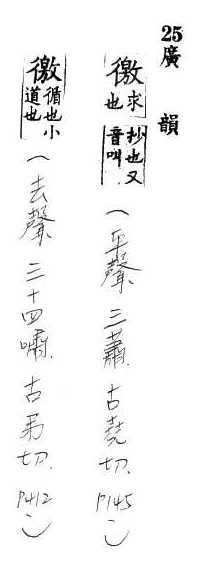 25廣韻
徼求也抄也又音叫(平聲三蕭.古堯切.P145)
徼循也小道也(去聲三十四嘯.古弔切.P412)